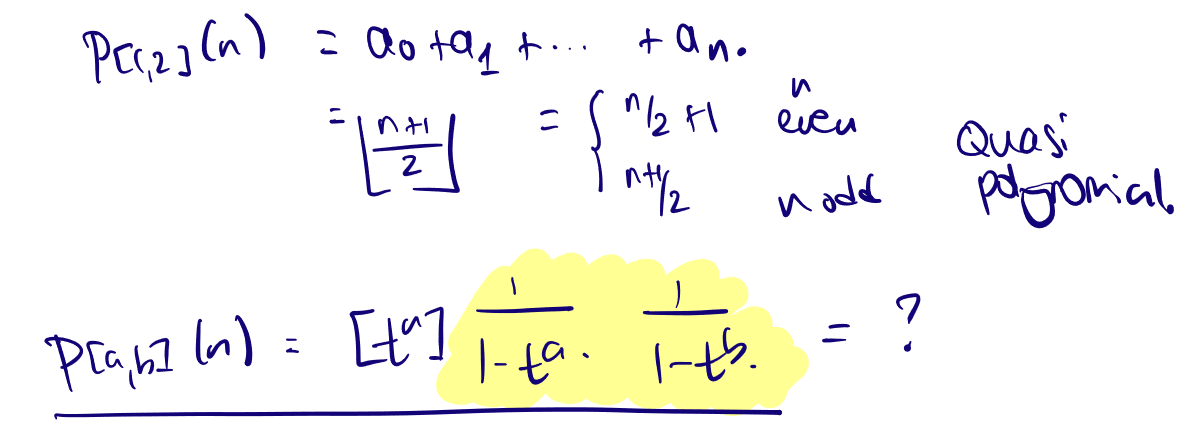 P[1,2](n) = a₀ + a₁ + ... + aₙ.
= ⌊(n+1)/2⌋ = { n/2 + 1 n even
n+1/2 n odd
Quasi polynomial.
P[a,b](n) = [tⁿ] 1/(1-tᵃ). 1/(1-tᵇ). = ?